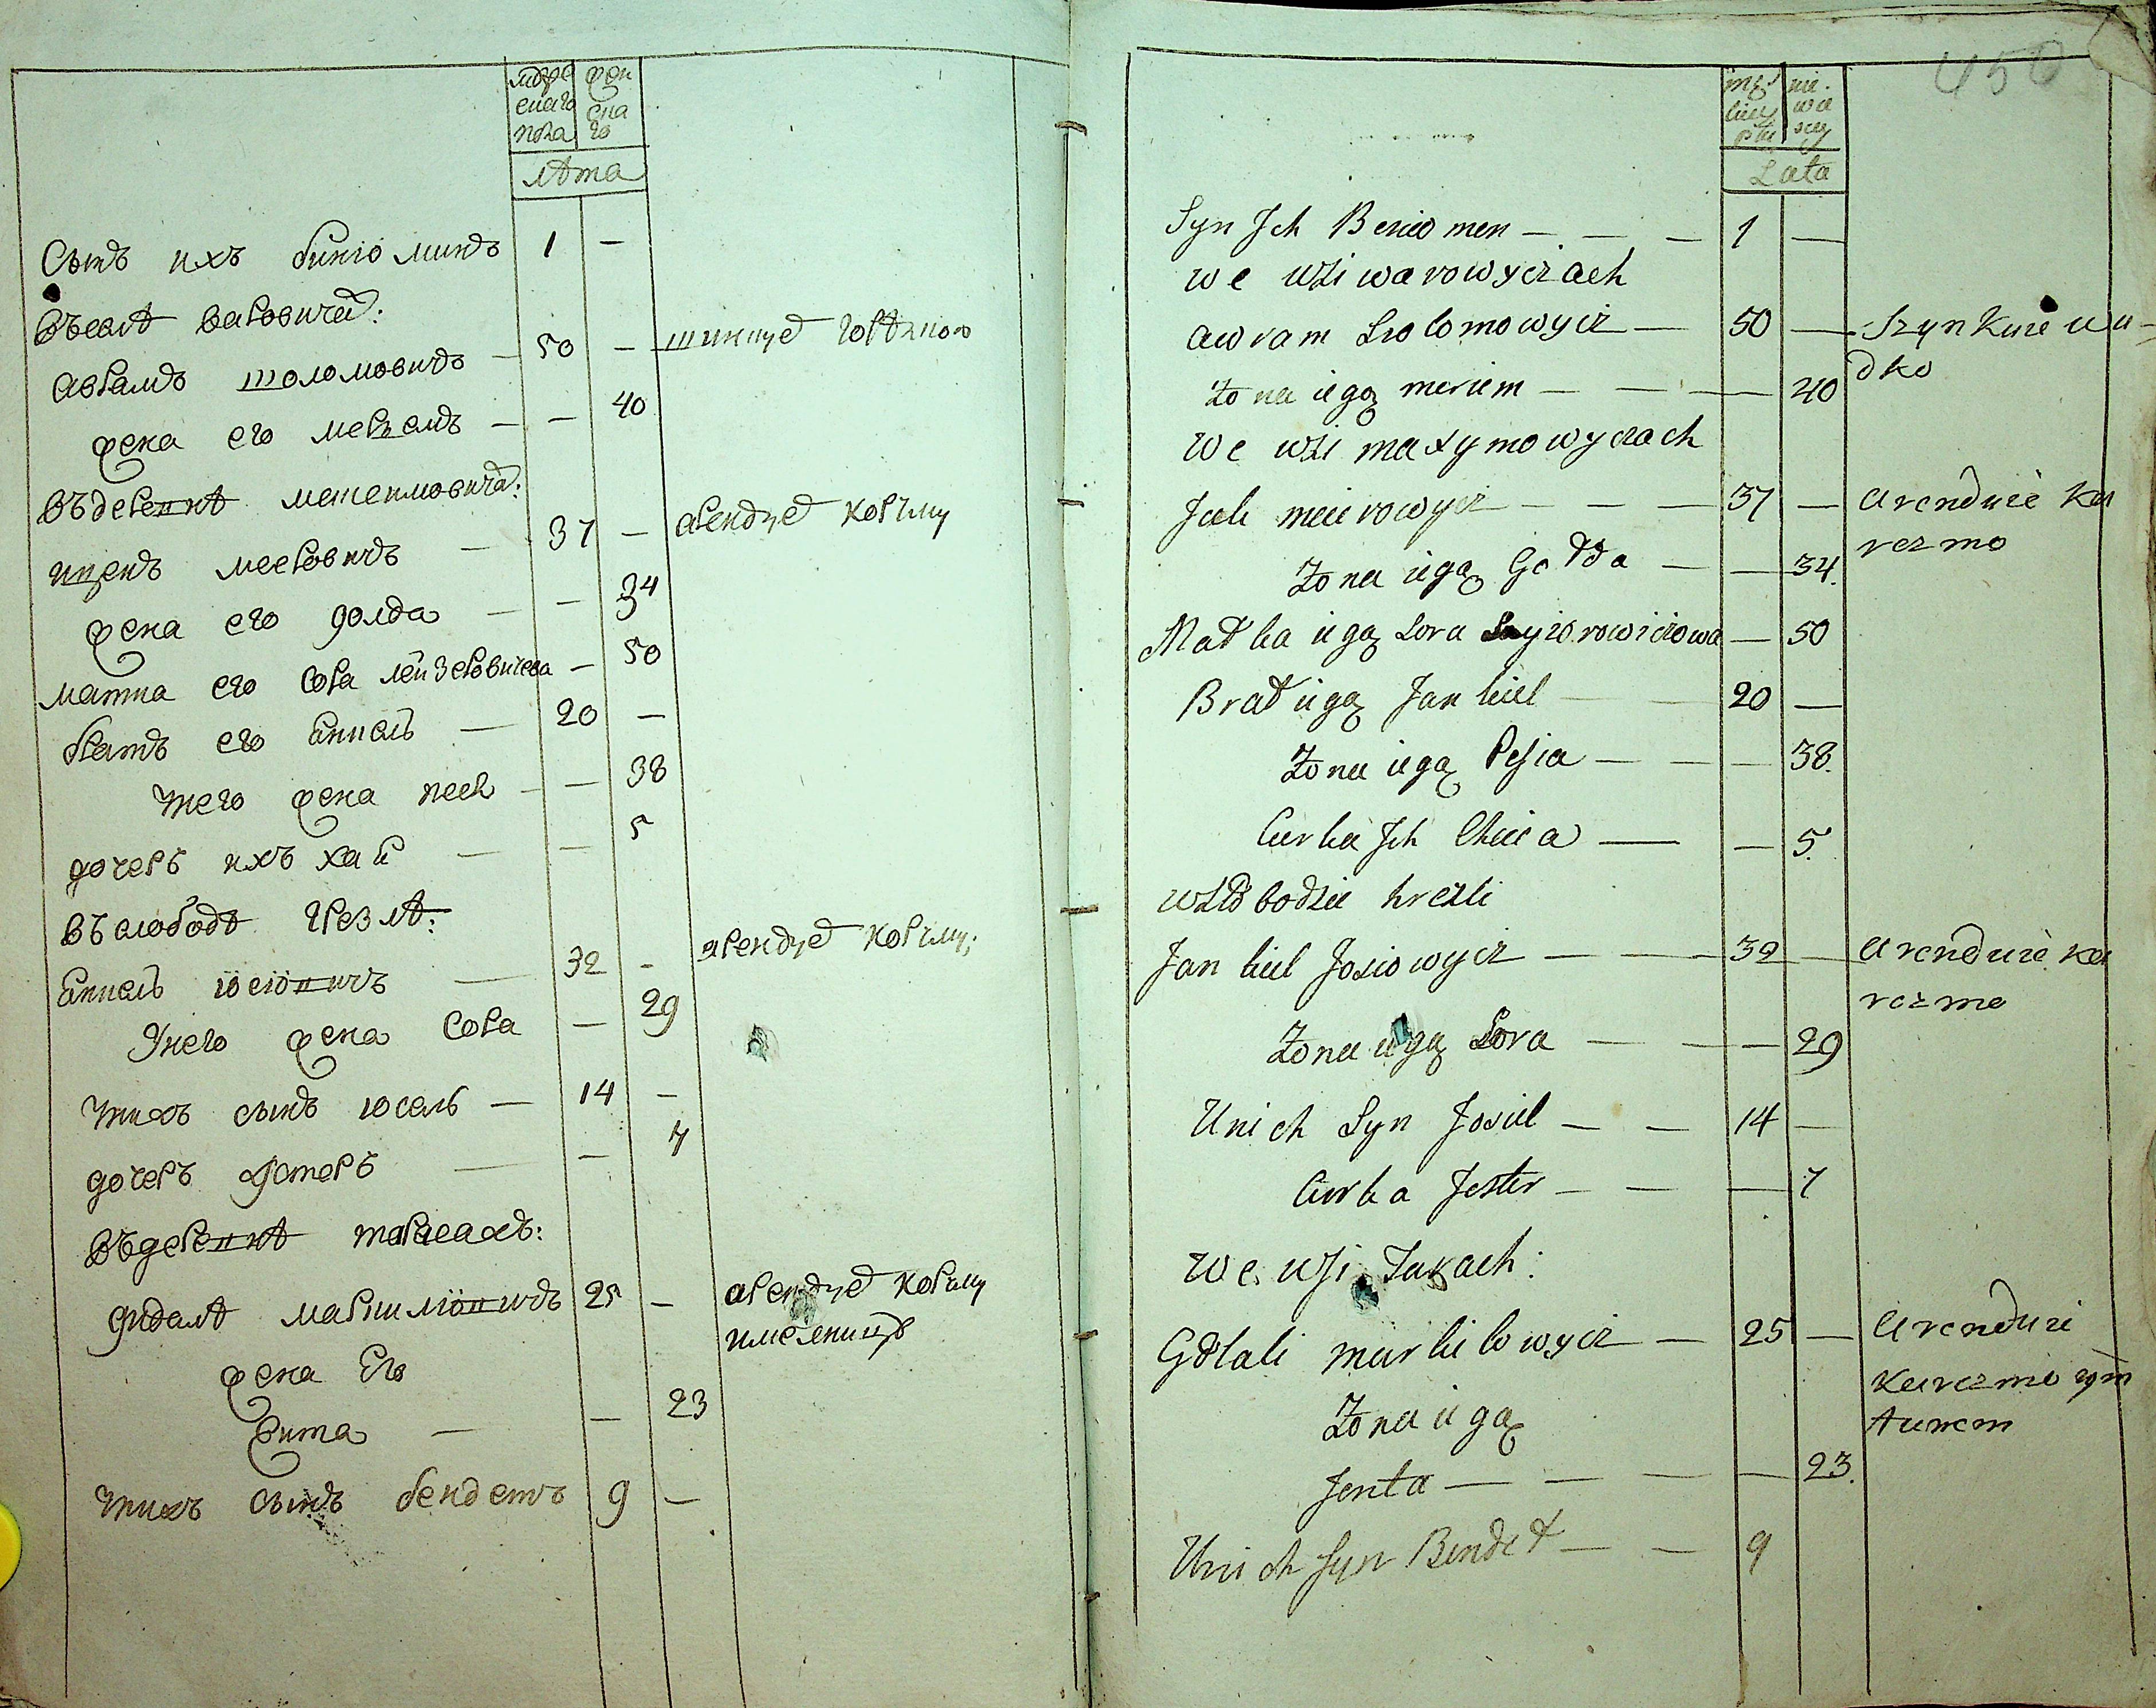 мужескаго пола
женскаго
лѣта
Сынъ ихъ биніоминъ 1 —
въселѣ варовичах:
Аврамъ шоломовичъ — 50 — шинкует горѣлкою
жена его мерземъ — — 40
въдеревнѣ
ицекъ мееровичъ — 37 — арендует корчму
жена его голда — — 34
матка его сора лейзеровичева — 50
братъ его янкель — 20 —
унего жена песя — — 38
дочеръ ихъ хая — — 5
въслободѣ грезлѣ:
янкель іосіовичъ — 32 — арендует корчму;
Унего жена сора — 29
унихъ сынъ іосель — 14 —
дочеръ эстеръ — — 7
въдеревнѣ
гидалѣ маркиліовичъ 25 — арендует корчму
жена Его
ента — — 23
унихъ сынъ бендетъ 9 —
450
Lata
Syn Jch Beniomen — — — 1 —
we wsi warowyczach
awram Szolomowycz — 50 — Szynkuie wu-
dko
żona iego meriem — — — 40
we wsi maxymowyczach
Jcek meierowycz — — — 37 — arenduie ka
rczmo
żona iego Golda — — 34.
Matka iego Sora Leyzorowiczowa — 50
Brat iego Jankiel — — 20 —
żona iego Pesia — — — 38.
Curka Jch Chaia — — 5.
wSlobodzie hrezli
Jankiel Josiowycz — — — 32 — arenduie ka
rczme
żona iego Sora — — — 29
Unich Syn Josiel — — 14 —
Curka Jester — — — 7
we wsi
Gdtali markilowycz — 25 — arenduie
karczme
żona iego
Jenta — — — — 23.
Unich syn Bendet — — 9